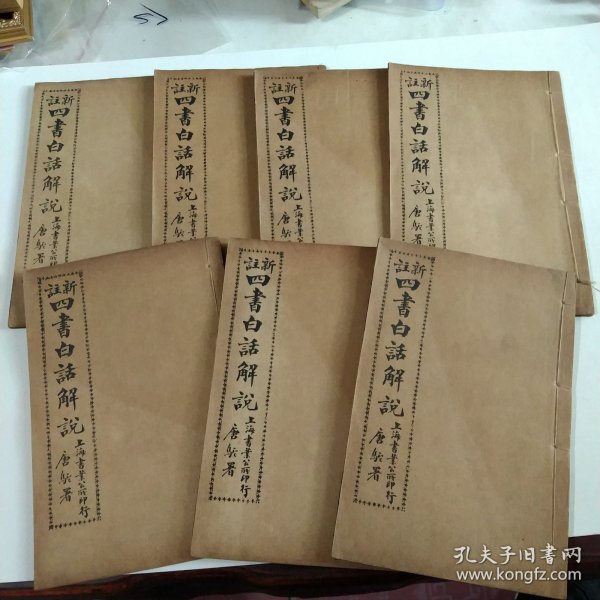 新註四書白話解説
上海書業公所印行
唐駝署
新註四書白話解説
上海書業公所印行
唐駝署
新註四書白話解説
上海書業公所印行
唐駝署
新註四書白話解説
上海書業公所印行
唐駝署
新註四書白話解説
上海書業公所印行
唐駝署
新註四書白話解説
上海書業公所印行
唐駝署
新註四書白話解説
上海書業公所印行
唐駝署
孔夫子旧书网
www.kongfz.com